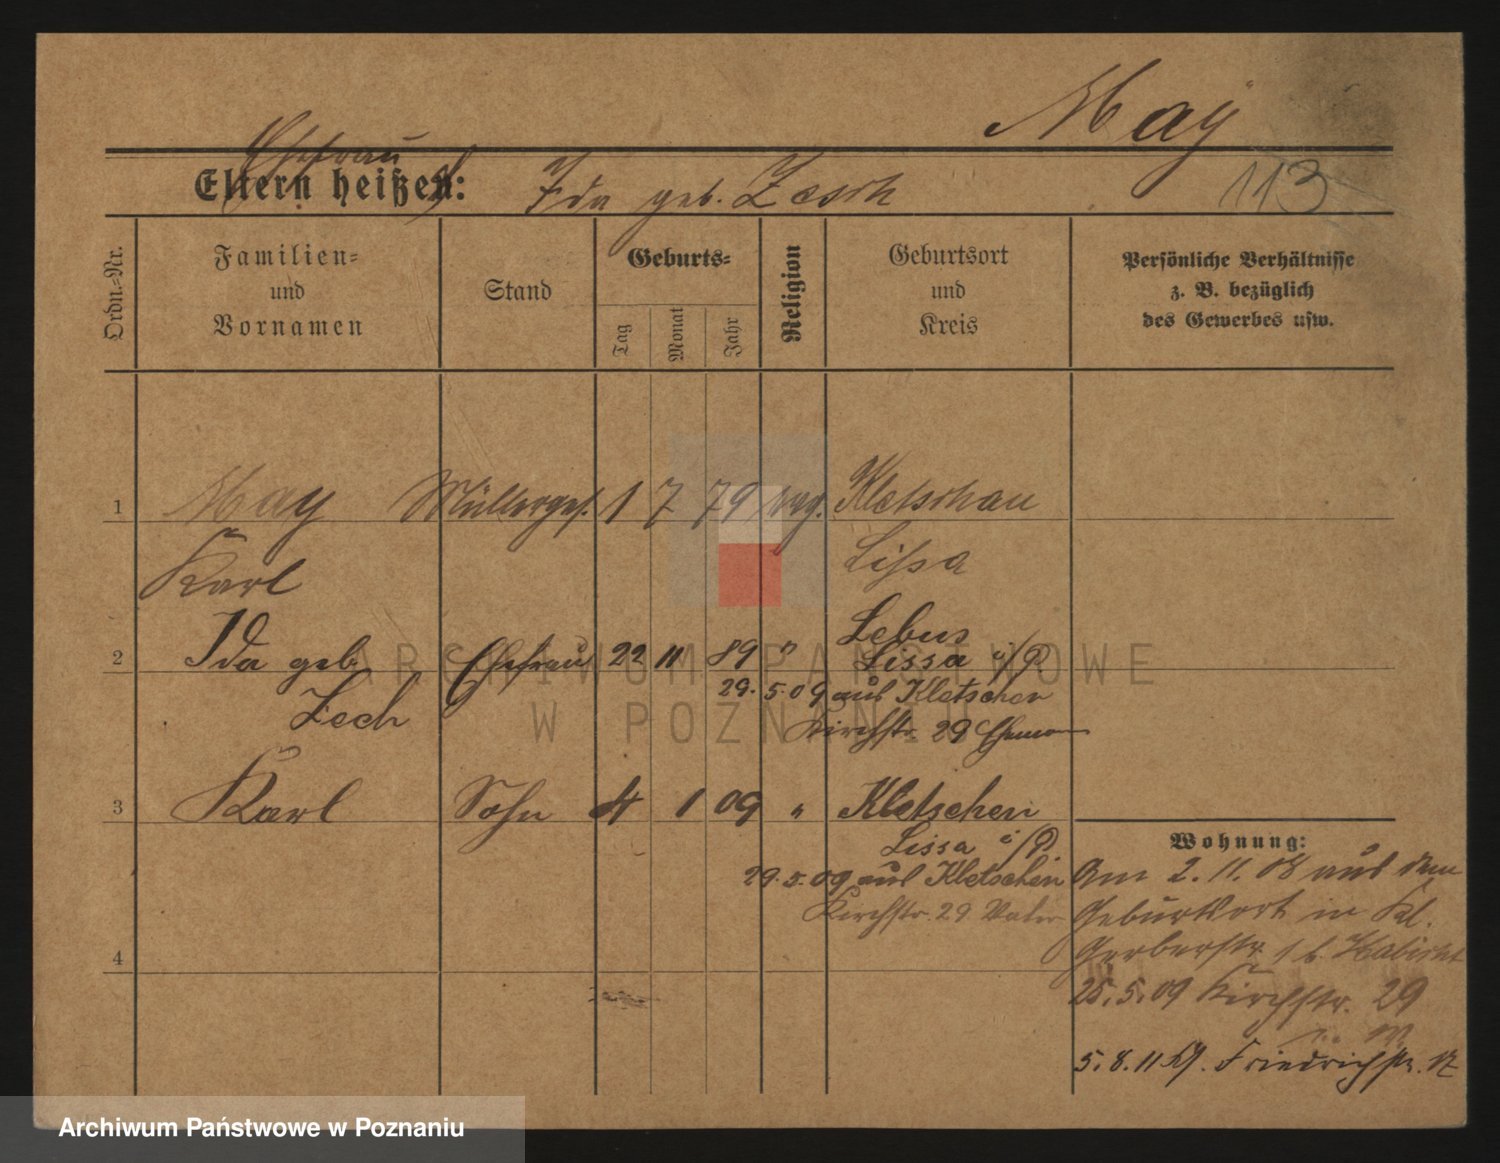 May
Ehefrau
Eltern heißen: Ida geb. Zesch
113
Ordn.-Nr.
Familien-
und
Vornamen
Stand
Geburts-
Tag
Monat
Jahr
Religion
Geburtsort
und
Kreis
Persönliche Verhältnisse
z. B. bezüglich
des Gewerbes usw.
1 May Müllerges. 1 7 79 evg. Kletschau
Karl Lissa
Lebus
2 Ida geb. Ehefrau 22 11 89 " Lissa i/P
Zech 29. 5. 09 aus Kletschen
Kirchstr. 29
3 Karl Sohn 4 1 09 " Kletschen
Lissa i/P.
29. 5. 09 aus Kletschen
Kirchstr. 29 Vater
4
Wohnung:
Am 2. 11. 08 aus dem
Geburtsort in Kl.
Gerberstr. 1 b. Habicht
25. 5. 09 Kirchstr. 29
5. 8. 11 Friedrichstr.
ARCHIWUM PAŃSTWOWE
W POZNANIU
Archiwum Państwowe w Poznaniu